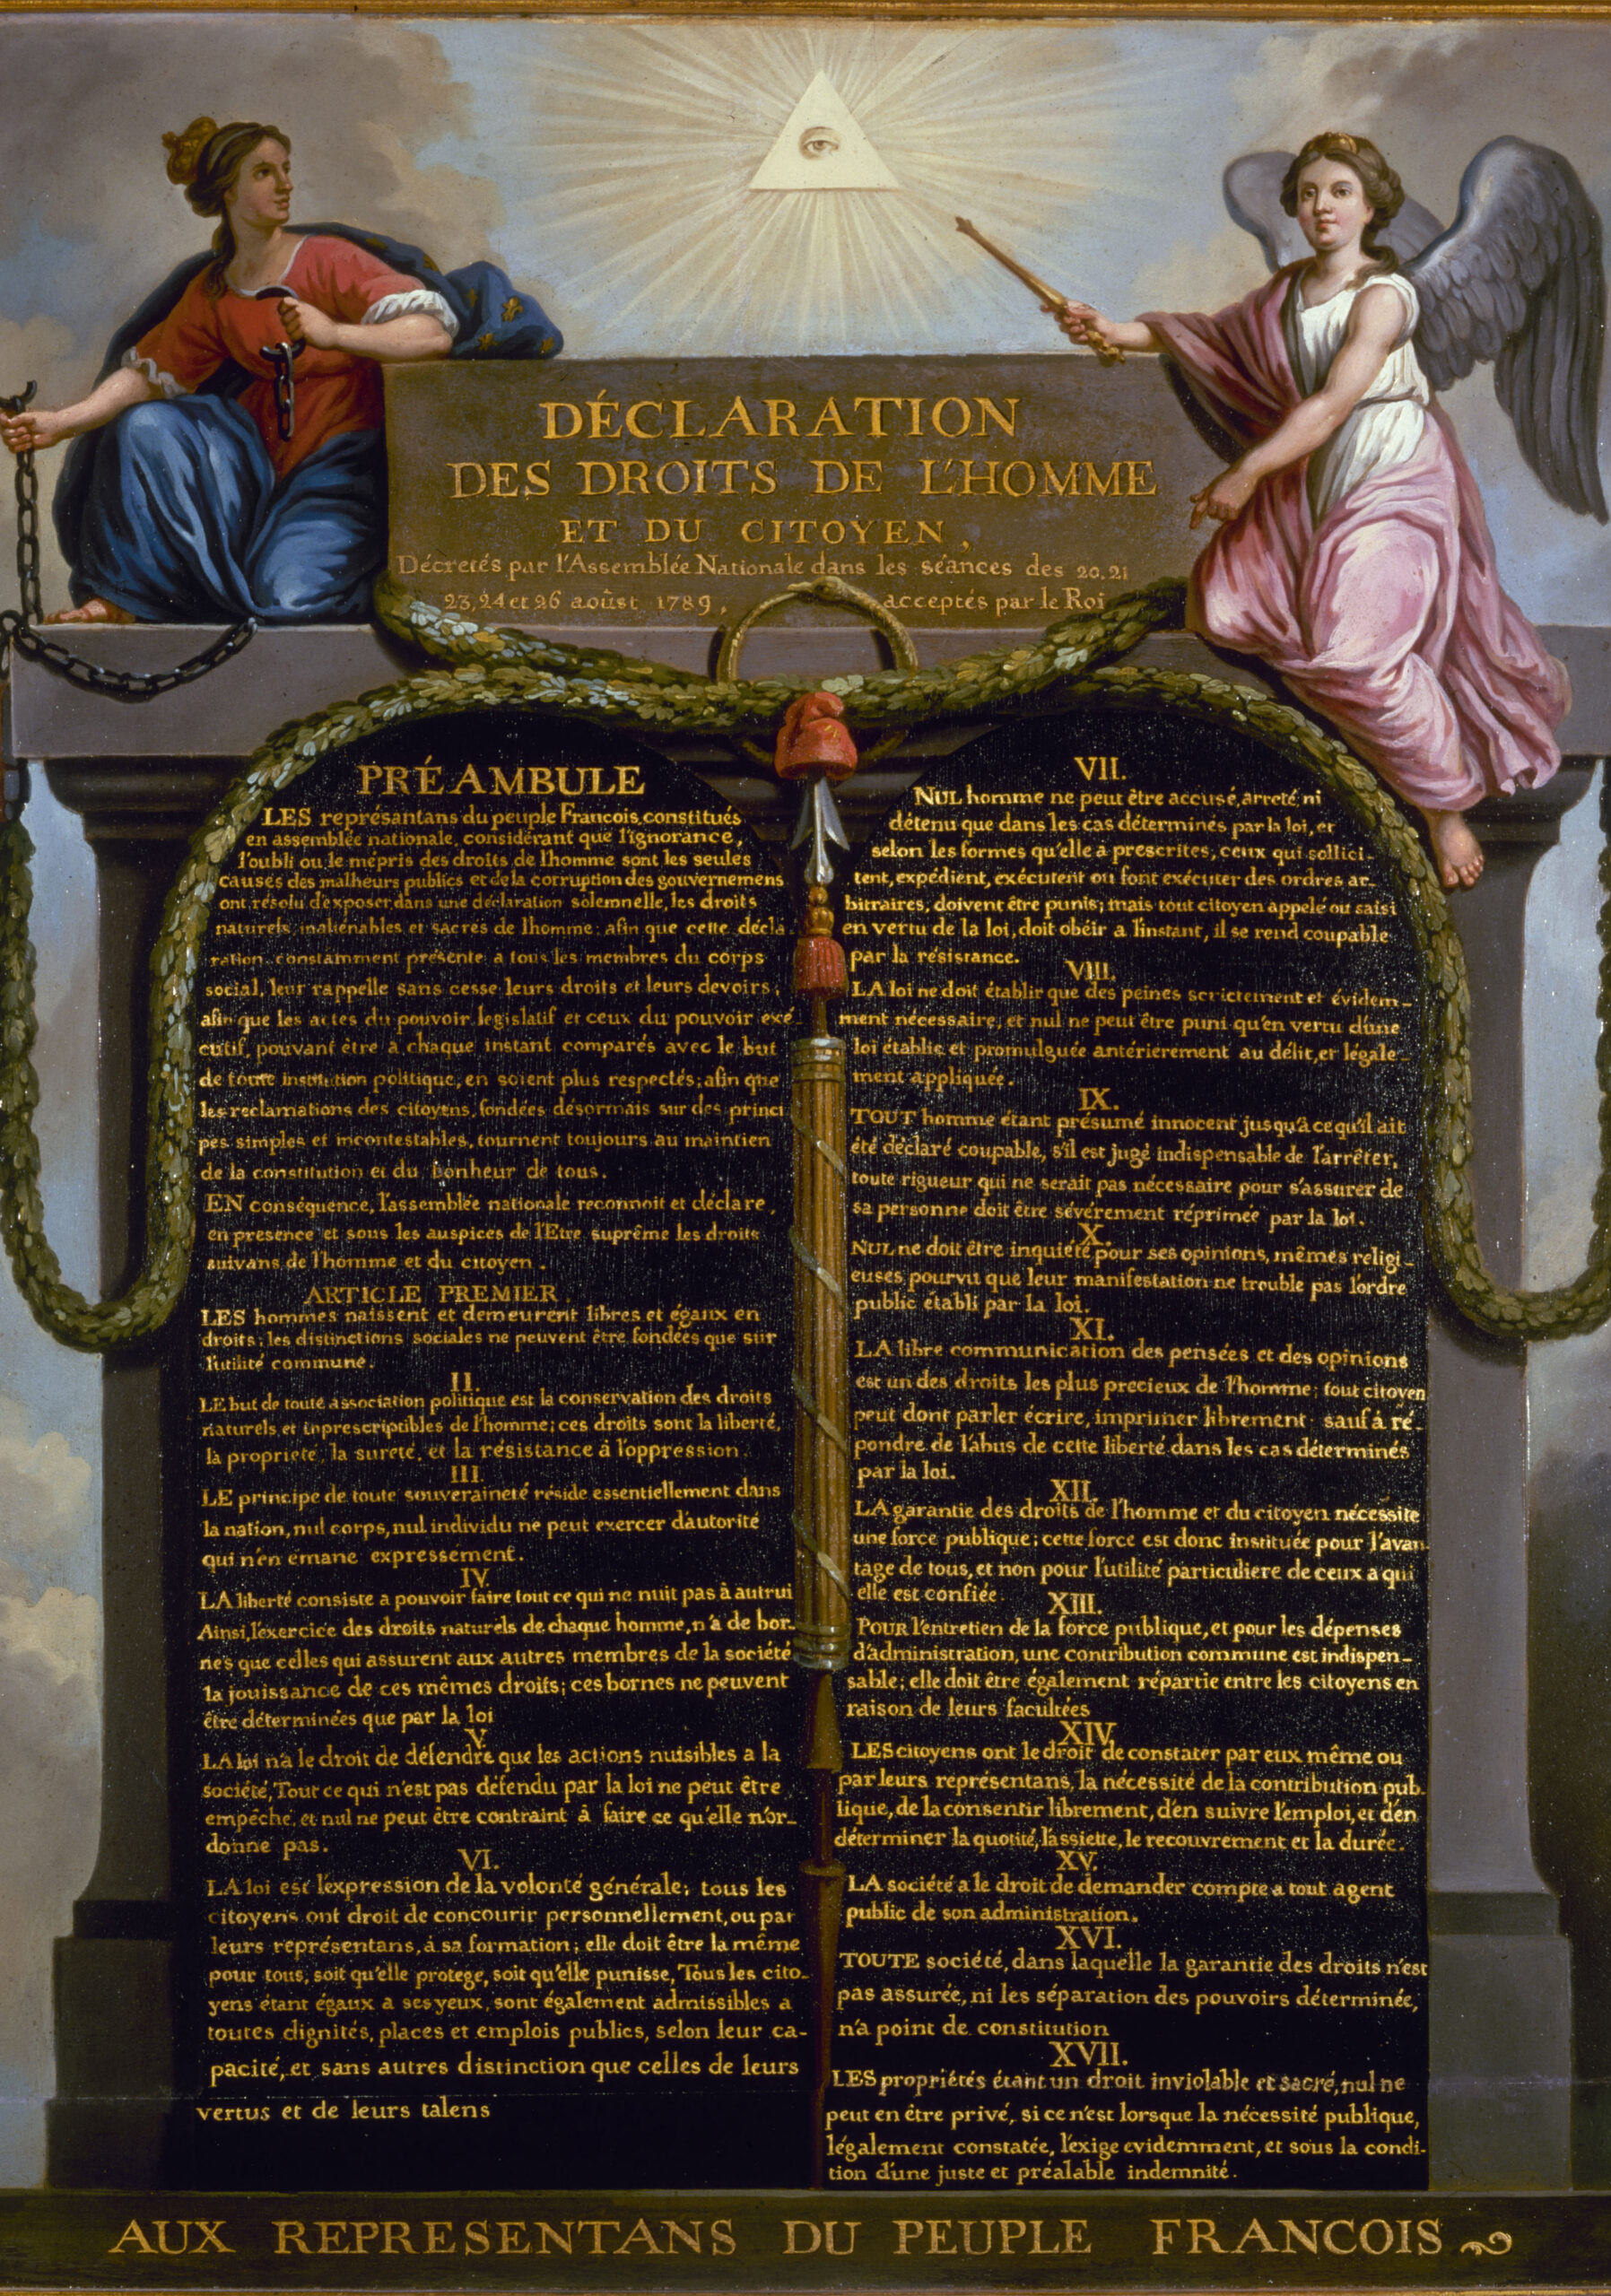 DÉCLARATION
DES DROITS DE L'HOMME
ET DU CITOYEN,
Décretés par l'Assemblée Nationale dans les séances des 20.21
23,24 et 26 août 1789, acceptés par le Roi
PRÉAMBULE
LES représantans du peuple Francois, constitués
en assemblée nationale, considérant que l'ignorance,
l'oubli ou le mépris des droits de l'homme sont les seules
causes des malheurs publics et de la corruption des gouvernemens
ont résolu d'exposer dans une déclaration solemnelle, les droits
naturels inaliénables et sacrés de l'homme; afin que cette décla-
ration constamment présente a tous les membres du corps
social, leur rappelle sans cesse leurs droits et leurs devoirs;
afin que les actes du pouvoir legislatif et ceux du pouvoir exé
cutif, pouvant être à chaque instant comparés avec le but
de toute institution politique, en soient plus respectés; afin que
les reclamations des citoyens, fondées désormais sur des princi
pes simples et incontestables, tournent toujours au maintien
de la constitution et du bonheur de tous.
EN conséquence, l'assemblée nationale reconnoit et déclare,
en presence et sous les auspices de l'Etre suprême les droits
suivans de l'homme et du citoyen.
ARTICLE PREMIER.
LES hommes naissent et demeurent libres et égaux en
droits; les distinctions sociales ne peuvent être fondées que sur
l'utilité commune.
II.
LE but de toute association politique est la conservation des droits
naturels et inprescriptibles de l'homme; ces droits sont la liberté,
la propriété, la sureté, et la résistance à l'oppression.
III.
LE principe de toute souveraineté réside essentiellement dans
la nation, nul corps, nul individu ne peut exercer d'autorité
qui n'en émane expressement.
IV.
LA liberté consiste a pouvoir faire tout ce qui ne nuit pas à autrui
Ainsi, l'exercice des droits naturels de chaque homme, n'à de bor-
nes que celles qui assurent aux autres membres de la société
la jouissance de ces mêmes droits; ces bornes ne peuvent
être déterminées que par la loi
V.
LA loi n'a le droit de défendre que les actions nuisibles a la
société, Tout ce qui n'est pas défendu par la loi ne peut être
empéché, et nul ne peut être contraint à faire ce qu'elle n'or-
donne pas.
VI.
LA loi est l'expression de la volonté générale; tous les
citoyens ont droit de concourir personnellement, ou par
leurs représentans, à sa formation; elle doit être la même
pour tous, soit qu'elle protege, soit qu'elle punisse, Tous les cito-
yens étant égaux a ses yeux, sont également admissibles a
toutes dignités, places et emplois publics, selon leur ca-
pacité, et sans autres distinction que celles de leurs
vertus et de leurs talens
VII.
NUL homme ne peut être accusé, arreté, ni
détenu que dans les cas déterminés par la loi, et
selon les formes qu'elle à prescrites, ceux qui sollici-
tent, expédient, exécutent ou font exécuter des ordres ar-
bitraires, doivent être punis; mais tout citoyen appelé ou saisi
en vertu de la loi, doit obéir a l'instant, il se rend coupable
par la résistance.
VIII.
LA loi ne doit établir que des peines strictement et évidem-
ment nécessaire, et nul ne peut être puni qu'en vertu d'une
loi établie et promulguée antérierement au délit, et légale-
ment appliquée.
IX.
TOUT homme étant présumé innocent jusqu'à ce qu'il ait
été déclaré coupable, s'il est jugé indispensable de l'arrêter,
toute rigueur qui ne serait pas nécessaire pour s'assurer de
sa personne doit être sévérement réprimée par la loi.
X.
NUL ne doit être inquiété pour ses opinions, mêmes religi-
euses pourvu que leur manifestation ne trouble pas l'ordre
public établi par la loi.
XI.
LA libre communication des pensées et des opinions
est un des droits les plus precieux de l'homme; tout citoyen
peut dont parler écrire, imprimer librement sauf à ré-
pondre de l'abus de cette liberté dans les cas déterminés
par la loi.
XII.
LA garantie des droits de l'homme et du citoyen nécessite
une force publique; cette force est donc instituée pour l'avan-
tage de tous, et non pour l'utilité particuliere de ceux a qui
elle est confiée.
XIII.
POUR l'entretien de la force publique, et pour les dépenses
d'administration, une contribution commune est indispen-
sable; elle doit être également répartie entre les citoyens en
raison de leurs facultées
XIV.
LES citoyens ont le droit de constater par eux même ou
par leurs représentans, la nécessité de la contribution pub-
lique, de la consentir librement, d'en suivre l'emploi, et d'en
déterminer la quotité, l'assiette, le recouvrement et la durée.
XV.
LA société a le droit de demander compte a tout agent
public de son administration.
XVI.
TOUTE société, dans laquelle la garantie des droits n'est
pas assurée, ni les séparation des pouvoirs déterminée,
n'a point de constitution
XVII.
LES propriétés étant un droit inviolable et sacré, nul ne
peut en être privé, si ce n'est lorsque la nécessité publique,
légalement constatée, l'exige evidemment, et sous la condi-
tion d'une juste et préalable indemnité.
AUX REPRESENTANS DU PEUPLE FRANCOIS